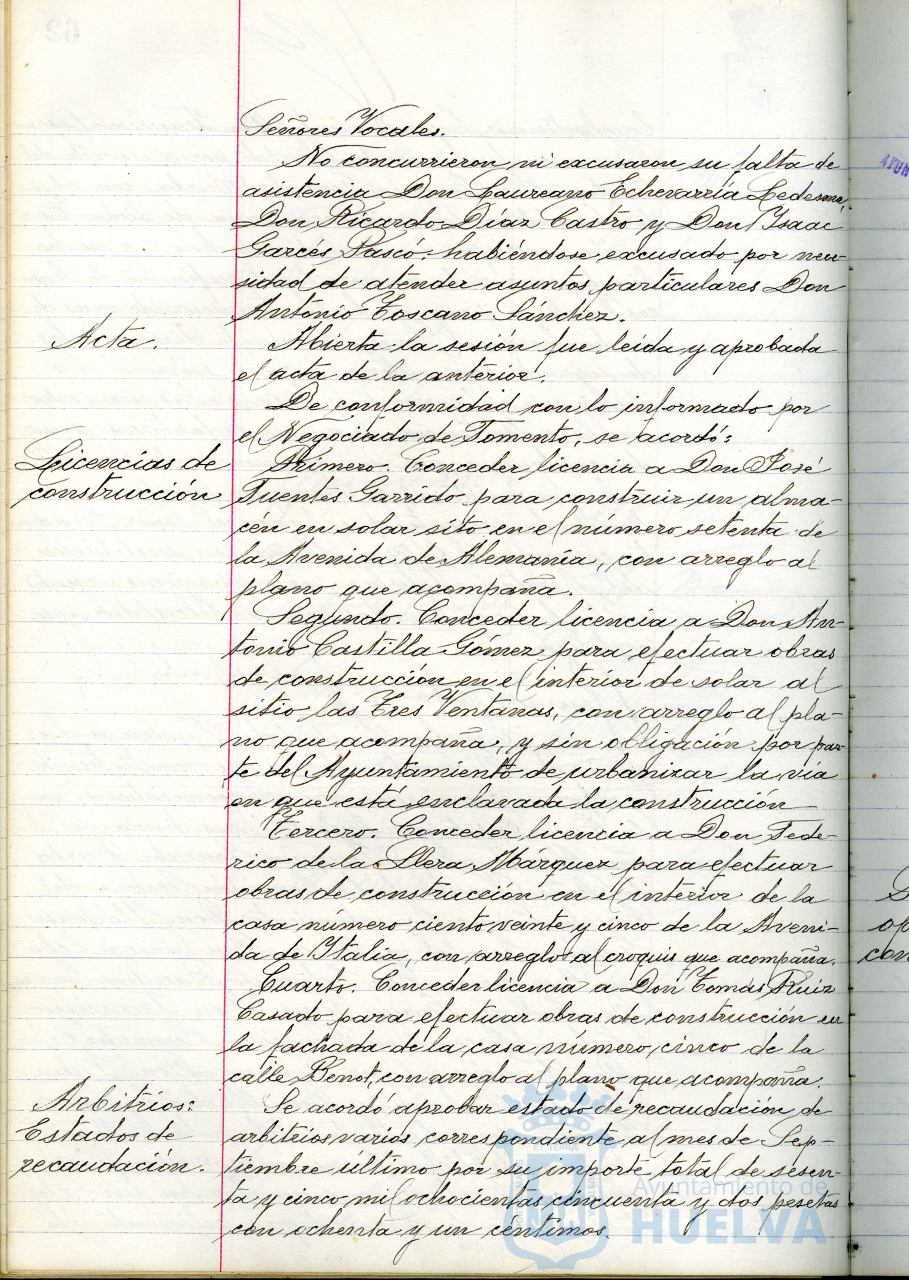 Señores Vocales.
No concurrieron ni excusaron su falta de
asistencia Don Laureano Echevarría Ledesma,
Don Ricardo Díaz Castro y Don Isaac
Garcés Pascó. habiéndose excusado por nece-
sidad de atender asuntos particulares Don
Antonio Toscano Sánchez.
Acta.
Abierta la sesión fue leida y aprobada
el acta de la anterior.
De conformidad con lo informado por
el Negociado de Fomento, se acordó:
Licencias de
construcción
Primero. Conceder licencia a Don José
Fuentes Garrido para construir un alma-
cén en solar sito en el número setenta de
la Avenida de Alemania, con arreglo al
plano que acompaña.
Segundo. Conceder licencia a Don An-
tonio Castilla Gómez para efectuar obras
de construcción en el interior de solar al
sitio las Tres Ventanas, con arreglo al pla-
no que acompaña, y sin obligación por par-
te del Ayuntamiento de urbanizar la vía
en que está enclavada la construcción
Tercero. Conceder licencia a Don Fede-
rico de la Llera Márquez para efectuar
obras de construcción en el interior de la
casa número ciento veinte y cinco de la Aveni-
da de Italia, con arreglo al croquis que acompaña.
Cuarto. Conceder licencia a Don Tomás Ruiz
Casado para efectuar obras de construcción en
la fachada de la casa número cinco de la
calle Benot, con arreglo al plano que acompaña.
Arbitrios:
Estados de
recaudación.
Se acordó aprobar estado de recaudación de
arbitrios varios correspondiente al mes de Sep-
tiembre último por su importe total de sesen-
ta y cinco mil ochocientas cincuenta y dos pesetas
con ochenta y un céntimos.
Ayuntamiento de
HUELVA